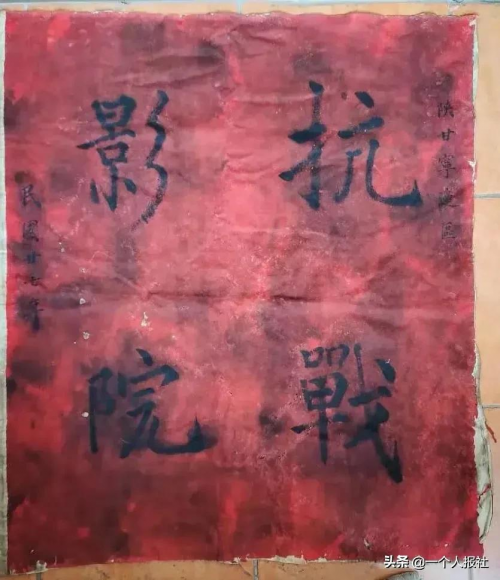 陕甘寧邊區
抗戰
影院
民國廿七年
头条 @一个人报社